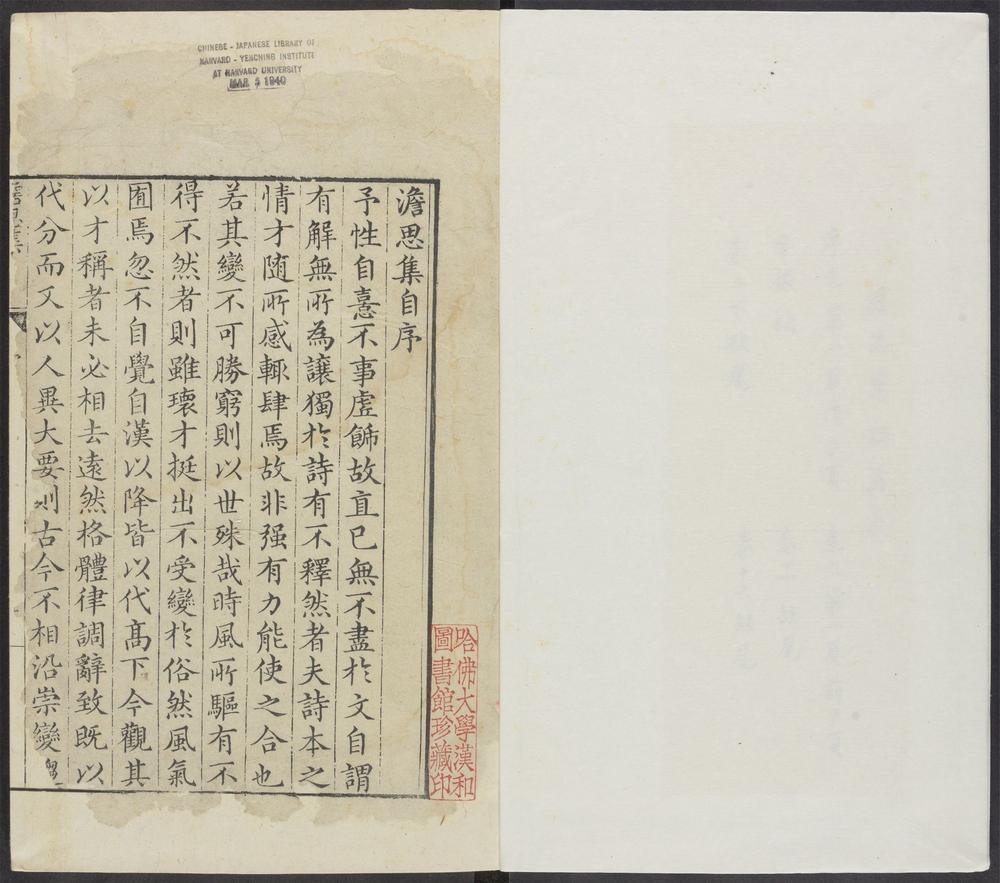 CHINESE - JAPANESE LIBRARY OF
HARVARD - YENCHING INSTITUTE
AT HARVARD UNIVERSITY
MAR 5 1940
澹思集自序
予性自憙不事虛飾故直已無不盡於文自謂
有解無所為讓獨於詩有不釋然者夫詩本之
情才随所感輙肆焉故非强有力能使之合也
若其變不可勝窮則以世殊哉時風所驅有不
得不然者則雖瓌才挺出不受變於俗然風氣
囿焉忽不自覺自漢以降皆以代髙下今觀其
以才稱者未必相去遠然格體律調辭致既以
代分而又以人異大要則古今不相沿崇變
哈佛大學漢和
圖書館珍藏印